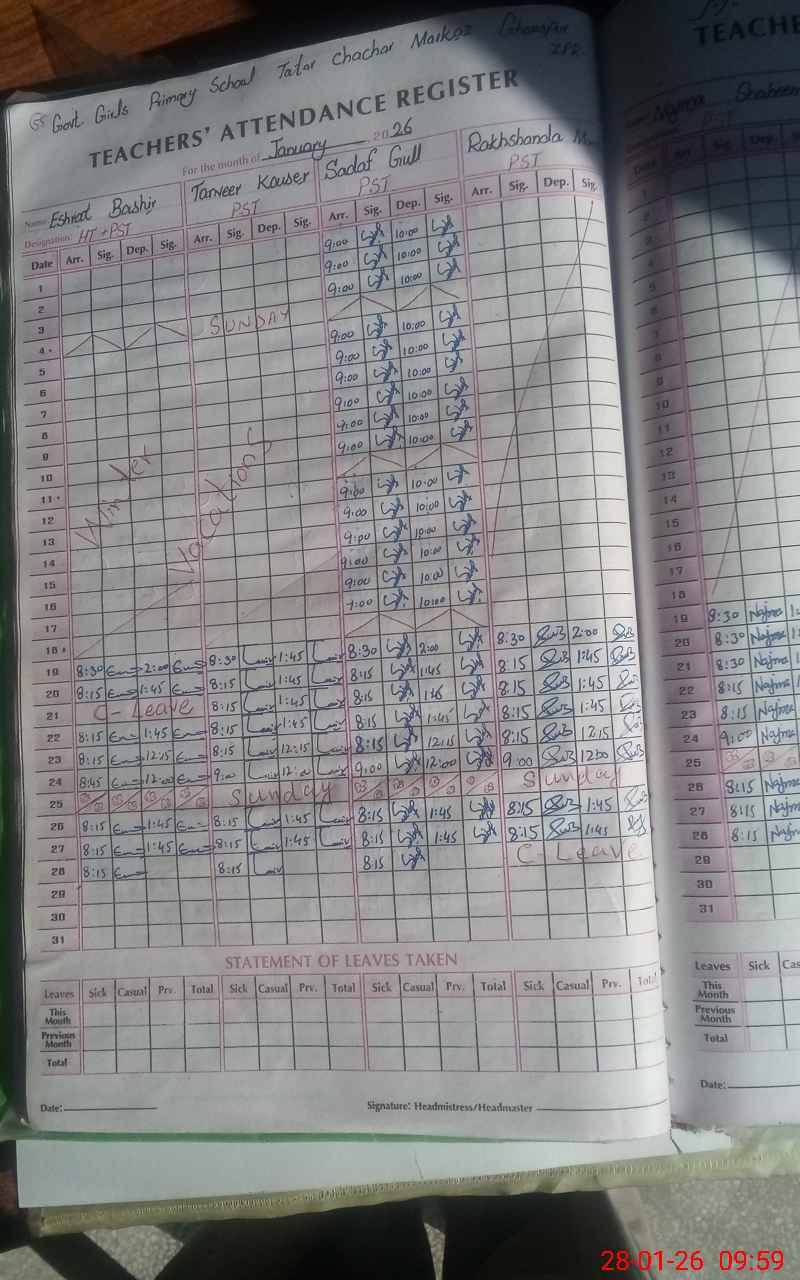 Govt Girls Primary School Tatar Chachar Markaz
TEACHERS' ATTENDANCE REGISTER
For the month of January 2026
Name Eshrat Bashir Tanveer Kouser Sadaf Gull Rakhshanda
Designation: HT+PST PST PST PST
Date Arr. Sig. Dep. Sig. Arr. Sig. Dep. Sig. Arr. Sig. Dep. Sig. Arr. Sig. Dep. Sig.
1 9:00 10:00
2 9:00 10:00
3 9:00 10:00
4 SUNDAY
5 9:00 10:00
6 9:00 10:00
7 9:00 10:00
8 9:00 10:00
9 9:00 10:00
10 9:00 10:00
11
12 9:00 10:00
13 9:00 10:00
14 9:00 10:00
15 9:00 10:00
16 9:00 10:00
17 10:00
Winter Vacations
18
19 8:30 2:00 8:30 1:45 8:30 2:00 8:30 2:00
20 8:15 1:45 8:15 1:45 8:15 1:45 8:15 1:45
21 C-Leave 8:15 1:45 8:15 1:45 8:15 1:45
22 8:15 1:45 8:15 1:45 8:15 1:45 8:15 1:45
23 8:15 12:15 8:15 12:15 8:15 12:15 8:15 12:15
24 8:45 12:00 9:00 12:00 9:00 12:00 9:00 12:00
25 Sunday Sunday
26 8:15 1:45 8:15 1:45 8:15 1:45 8:15 1:45
27 8:15 1:45 8:15 1:45 8:15 1:45 8:15 1:45
28 8:15 8:15 8:15 C-Leave
29
30
31
STATEMENT OF LEAVES TAKEN
Leaves Sick Casual Prv. Total Sick Casual Prv. Total Sick Casual Prv. Total Sick Casual Prv. Total
This Month
Previous Month
Total
Date: Signature: Headmistress/Headmaster
TEACHE
Najma Shaheen
Arr. Sig. Dep.
1
2
3
4
5
6
7
8
9
10
11
12
13
14
15
16
17
18
19 8:30 Najma
20 8:30 Najma
21 8:30 Najma
22 8:15 Najma
23 8:15 Najma
24 9:00 Najma
25
26 8:15 Najma
27 8:15 Najma
28 8:15 Najma
29
30
31
Leaves Sick Cas
This Month
Previous Month
Total
Date:
28-01-26 09:59